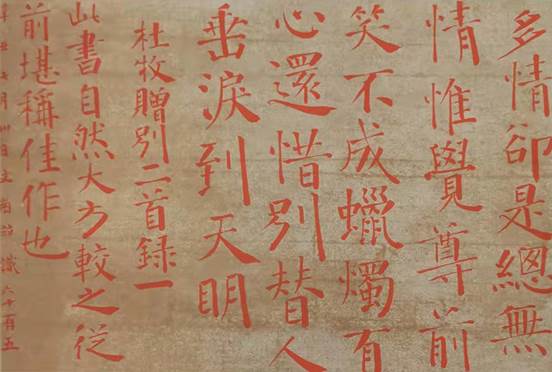 多情卻是總無
情惟覺尊前
笑不成蠟燭有
心還惜別替人
垂淚到天明
杜牧贈別二首錄一
此書自然大方較之從
前堪稱佳作也